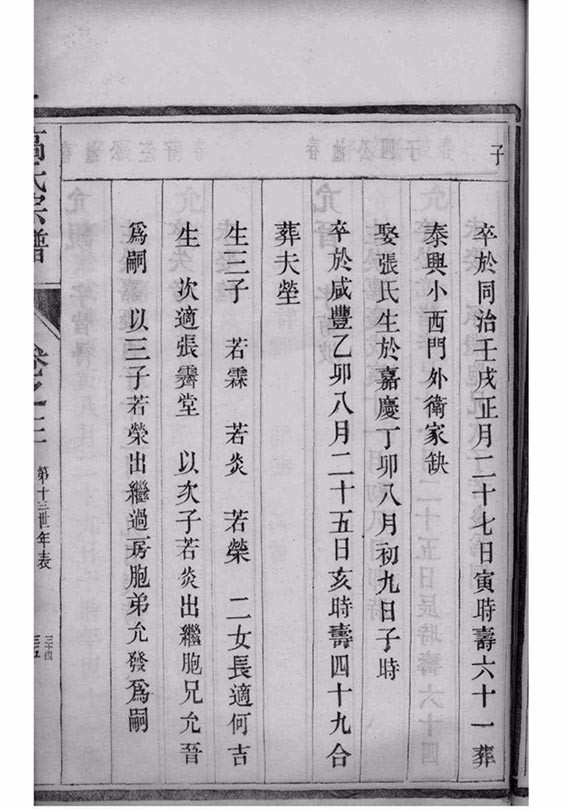 子
卒於同治壬戌正月二十七日寅時壽六十一葬
泰興小西門外衛家缺
娶張氏生於嘉慶丁卯八月初九日子時
卒於咸豐乙卯八月二十五日亥時壽四十九合
葬夫塋
生三子 若霖 若炎 若榮 二女長適何吉
生 次適張霽堂 以次子若炎出繼胞兄允晉
爲嗣 以三子若榮出繼過房胞弟允發爲嗣
高氏宗譜
卷之三
第十三世年表